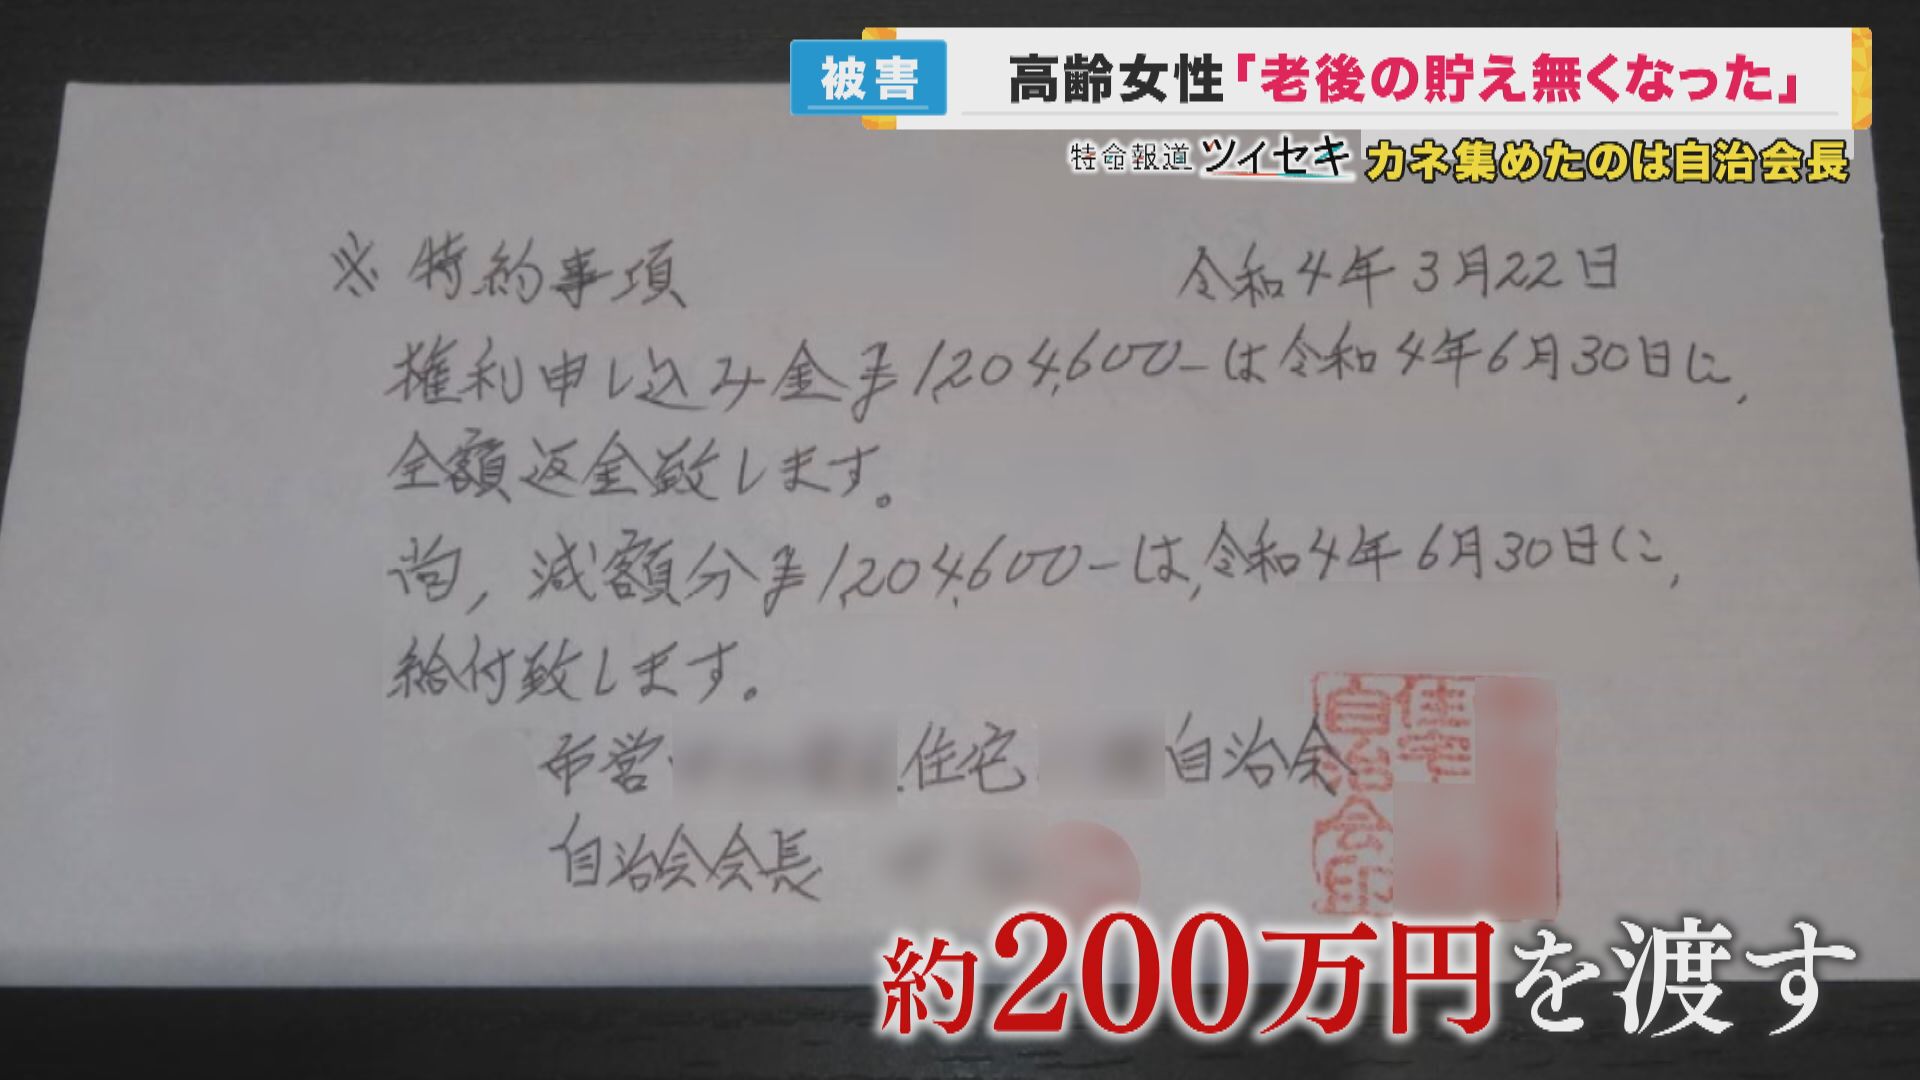 被害
高齢女性「老後の貯え無くなった」
特命報道 ツイセキ カネ集めたのは自治会長
※ 特約事項 令和4年3月22日
権利申し込み金 1,204,600-は令和4年6月30日に,
全額返金致します。
尚, 減額分 1,204,600-は,令和4年6月30日に,
給付致します。
市営 住宅 自治会
住宅
自治会印
自治会会長
約200万円を渡す